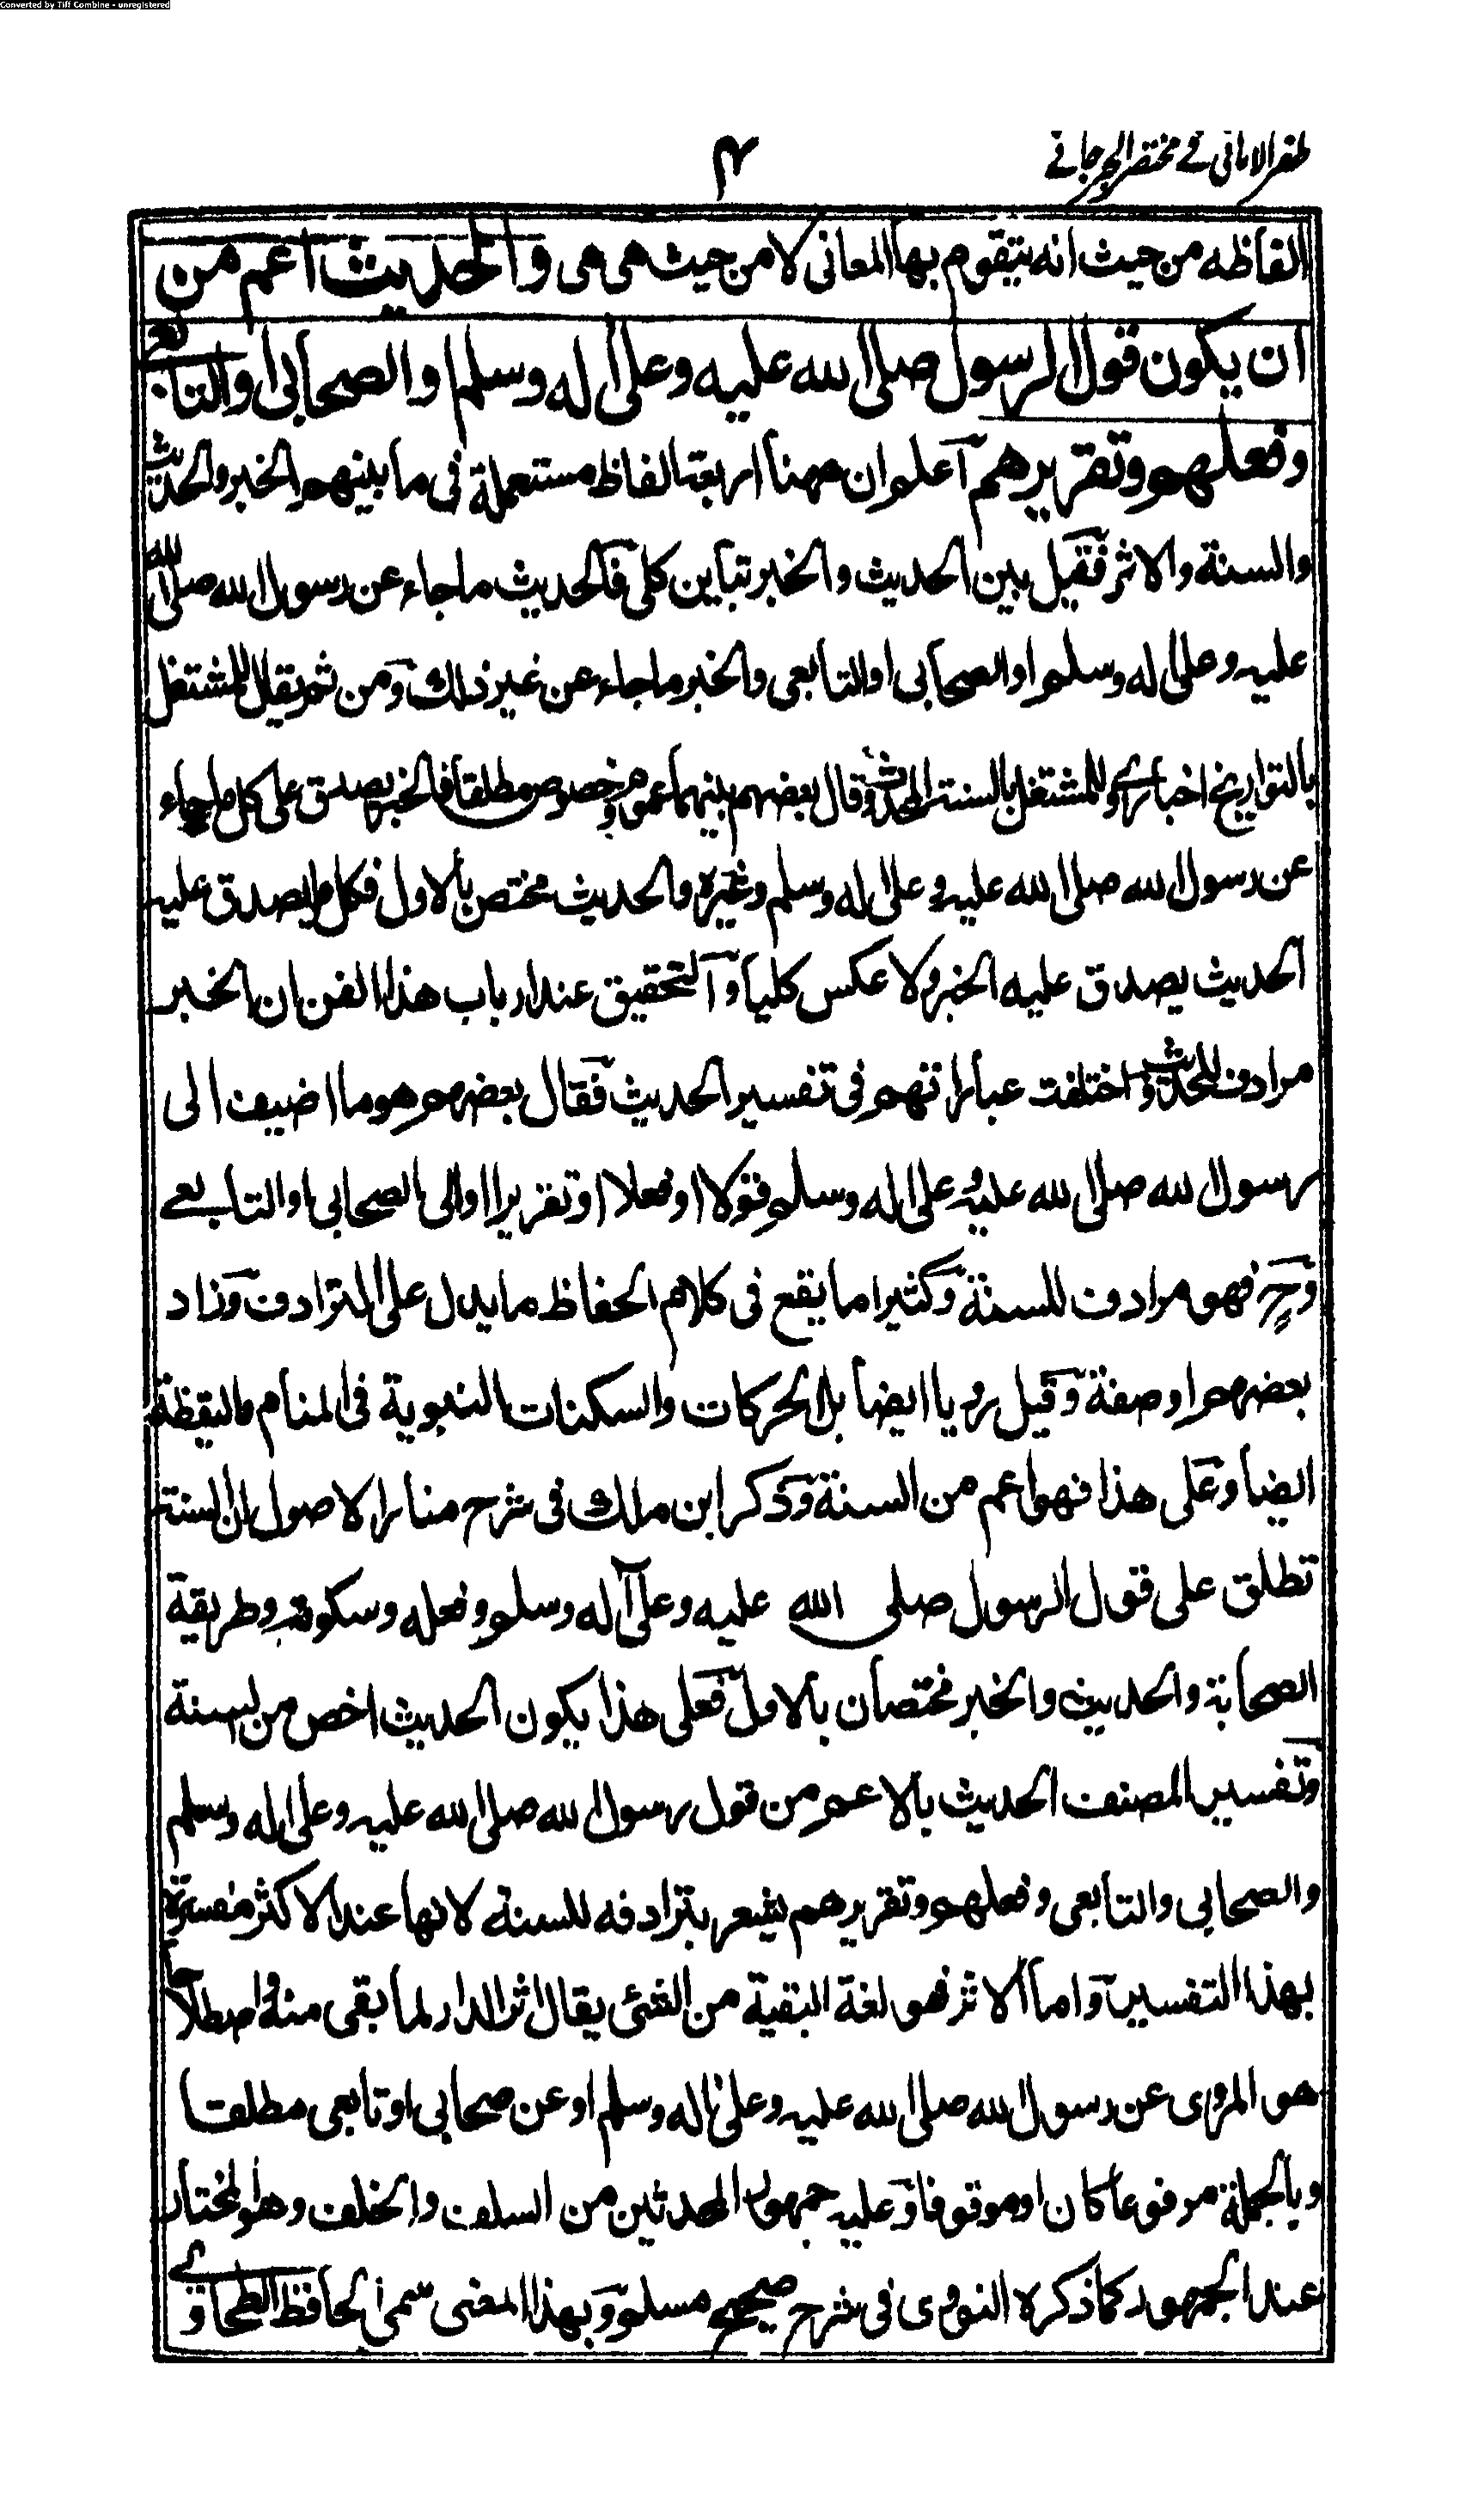 Converted by Tiff Combine - unregistered
ظفر الامانى فے مختصر الجرجانے
۴
الفاظه من حيث انه يتقوم بها المعانى لا من حيث هى هى والحديث اعم من
ان يكون قول الرسول صلى الله عليه وعلى اله وسلم او الصحابى او التابعى
وفعلهم وتقريرهم آعلم ان ههنا اربعة الفاظ مستعملة فى ما بينهم الخبر والحديث
والسنة والاثر فقيل بين الحديث والخبر تباين كلى فالحديث ما جاء عن رسول الله صلى الله
عليه وعلى اله وسلم او الصحابى او التابعى والخبر ما جاء عن غير ذلك ومن ثم يقال للمشتغل
بالتواريخ اخبارى وللمشتغل بالسنة المحدث وقال بعضهم بينهما عموم وخصوص مطلقا فالخبر يصدق على كل ما جاء
عن رسول الله صلى الله عليه وعلى اله وسلم وغيره والحديث مختص بالاول فكل ما يصدق عليه
الحديث يصدق عليه الخبر ولا عكس كليا وآلتحقيق عند ارباب هذا الفن ان الخبر
مرادف للحديث واختلفت عباراتهم فى تفسير الحديث فقال بعضهم هو ما اضيف الى
رسول الله صلى الله عليه وعلى اله وسلم قولا او فعلا او تقريرا او الى الصحابى او التابعے
وح فهو مرادف للسنة وكثيرا ما يقع فى كلام الحفاظ ما يدل على الترادف وزاد
بعضهم او صفة وقيل رويا ايضا بل الحركات والسكنات النبوية فى المنام واليقظة
ايضا وعلى هذا فهو اعم من السنة وذكر ابن ملك فى شرح منار الاصول ان السنة
تطلق على قول الرسول صلى الله عليه وعلى آله وسلم وفعله وسكوته وطريقة
الصحابة والحديث والخبر مختصان بالاول فعلى هذا يكون الحديث اخص من السنة
وتفسير المصنف الحديث بالاعم من قول رسول الله صلى الله عليه وعلى اله وسلم
والصحابى والتابعى وفعلهم وتقريرهم يشعر بترادفه للسنة لانها عند الاكثر مفسرة
بهذا التفسير وآما الاثر فهو لغة البقية من الشئ يقال اثر الدار لما بقى منه واصطلاحا
هو المروى عن رسول الله صلى الله عليه وعلى اله وسلم او عن صحابى او تابعى مطلقا
وبالجملة مرفوعا كان او موقوفا وعليه جمهور المحدثين من السلف والخلف وهو المختار
عند الجمهور كما ذكره النووى فى شرح صحيح مسلم وبهذا المعنى سمى الحافظ الطحاوے